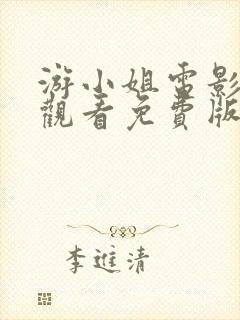 游小姐電影
觀看免費版
李進清